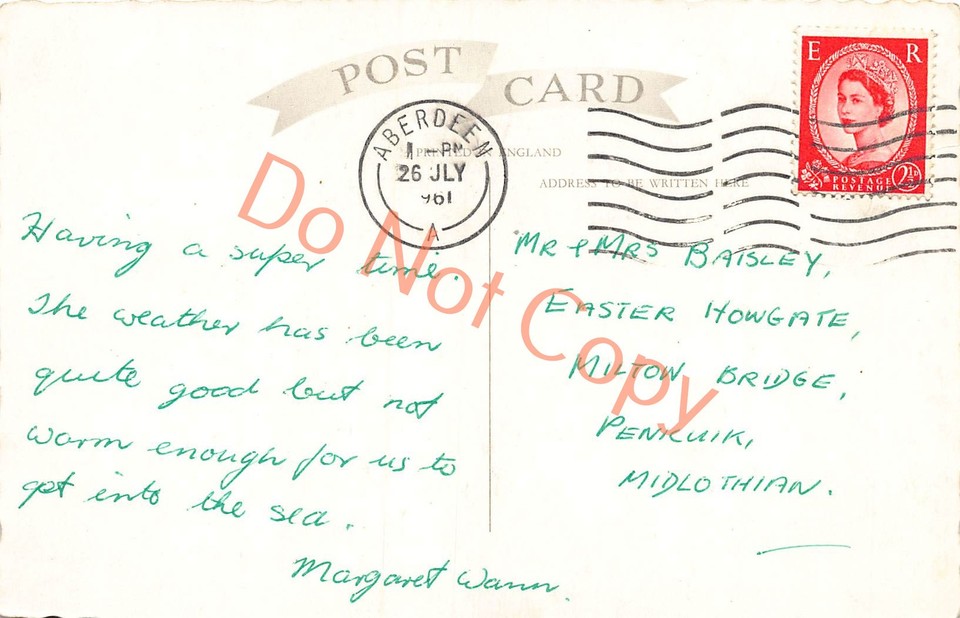 POST CARD
PRINTED IN ENGLAND
ADDRESS TO BE WRITTEN HERE
ABERDEEN
1 - PM
26 JLY
961
A
E R
POSTAGE
REVENUE
2½D
Having a super time.
The weather has been
quite good but not
warm enough for us to
get into the sea.
Margaret Wann.
MR & MRS BAISLEY,
EASTER HOWGATE,
MILTON BRIDGE,
PENICUIK,
MIDLOTHIAN.
Do Not Copy